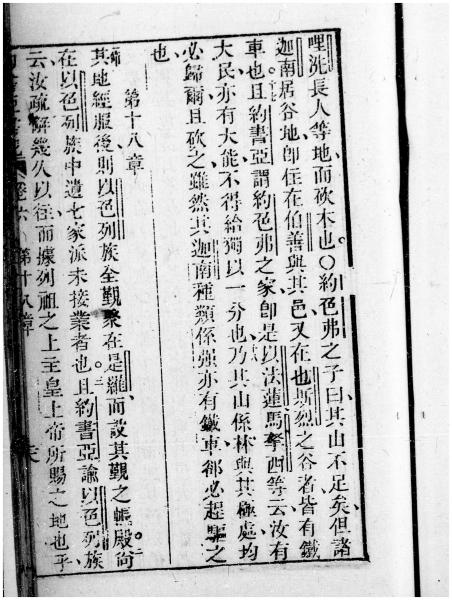 哩洗長人等地而砍木也。○約色弗之子曰其山不足矣但諸
迦南居谷地卽住在伯善與其邑又在也斯烈之谷者皆有鐵
車也且約書亞謂約色弗之家卽是以法蓮馬拏西等云汝有
大民亦有大能不得給獨以一分也乃其山係林與其極處均
必歸爾且砍之雖然其迦南種類係强亦有鐵車都必趕驅之
也
第十八章
其地經服後則以色列族全覲聚在是羅而設其覲之帳殿。尙
在以色列族中遺七家派未接業者也。且約書亞諭以色列族
云汝疏解幾久以往而據列祖之上主皇上帝所賜之地也乎
卷六 第十八章